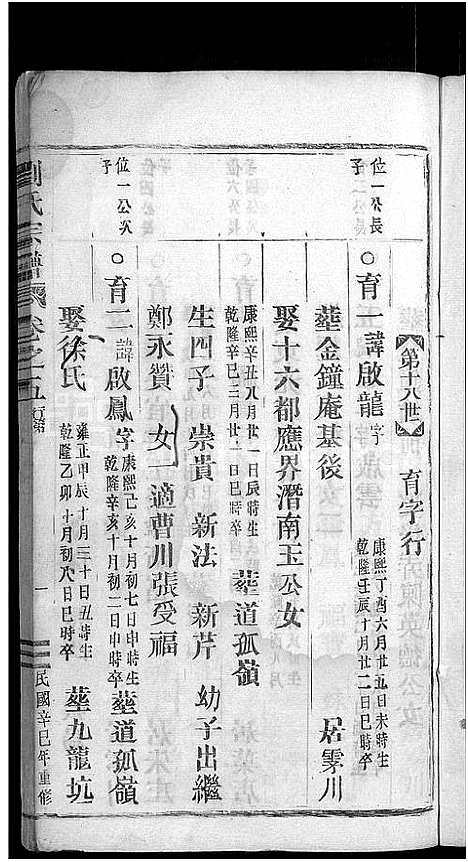 第十八世 育字行
位一公長子
○育一 諱啟龍 字 康熙丁酉六月廿五日未時生 乾隆壬辰十月廿二日巳時卒 居霅川
塟金鐘庵基後
娶十六都應界潛南玉公女
康熙辛丑九月廿一日辰時生 乾隆辛巳三月廿一日巳時卒 塟道孤嶺
生四子 崇貴 新法 新芹 幼子出繼
鄭永贊 女一適曹川張受福
位一公次子
○育二 諱啟鳳 字 康熙己亥十月初七日申時生 乾隆辛亥十月初二日申時卒 塟道孤嶺
娶徐氏 雍正甲辰十月三十日丑時生 乾隆乙卯十月初八日巳時卒 塟九龍坑
劉氏宗譜 卷之五 一 民國辛巳年重修